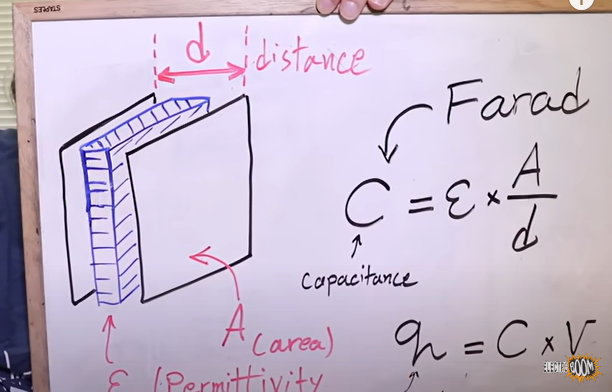 STAPLES
d
distance
Farad
C = ε × A/d
capacitance
A (area)
q = C × V
ε (Permittivity
ELECTROBOOM